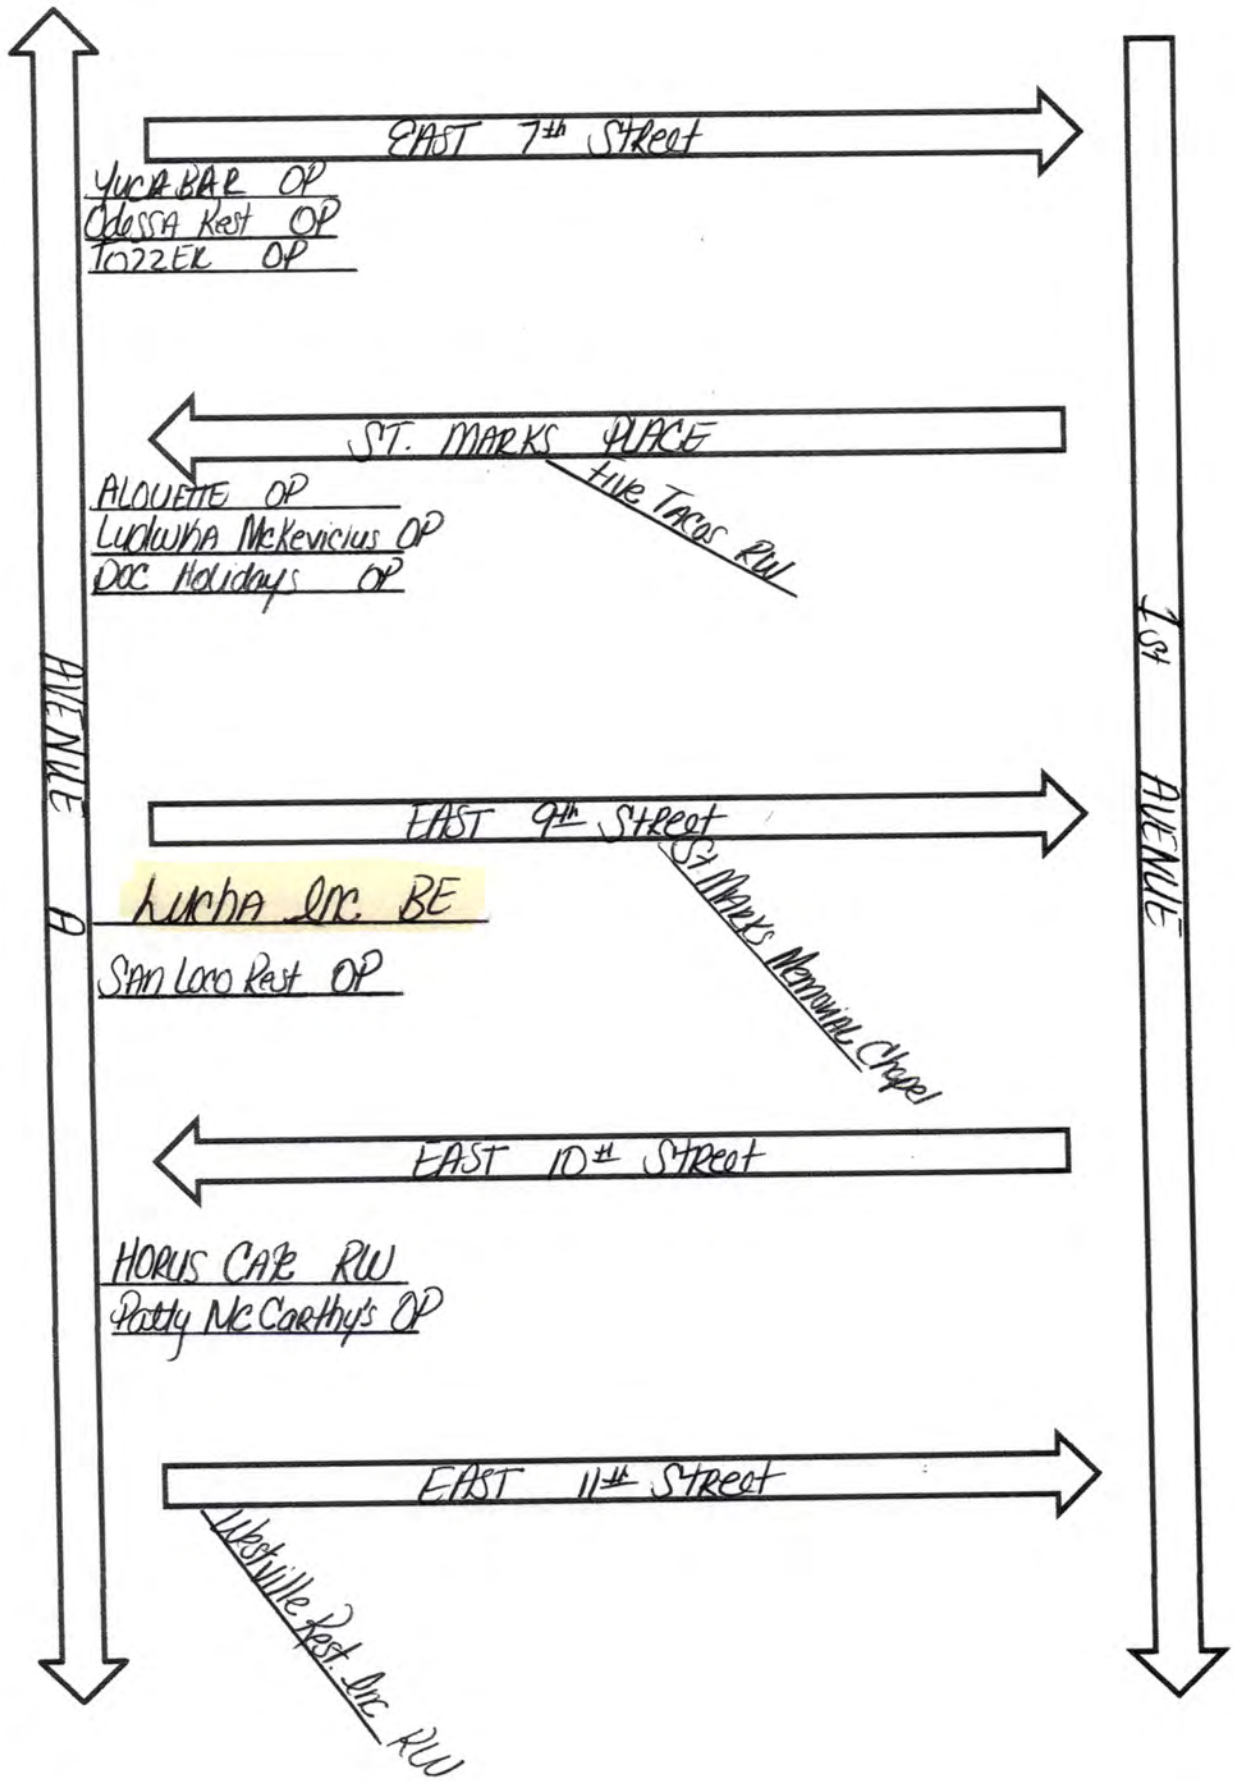 EAST 7th Street
YUCA BAR OP
Odessa Rest OP
TOZZER OP
ST. MARKS PLACE
Five Tacos RW
ALOUETTE OP
Ludwika McKevicius OP
DOC Holidays OP
AVENUE A
1st AVENUE
EAST 9th Street
St Marks Memorial Chapel
Lucha Inc. BE
SAN Loco Rest OP
EAST 10th Street
HORUS CAFE RW
Patty McCarthy's OP
EAST 11th Street
Westville Rest. Inc RW